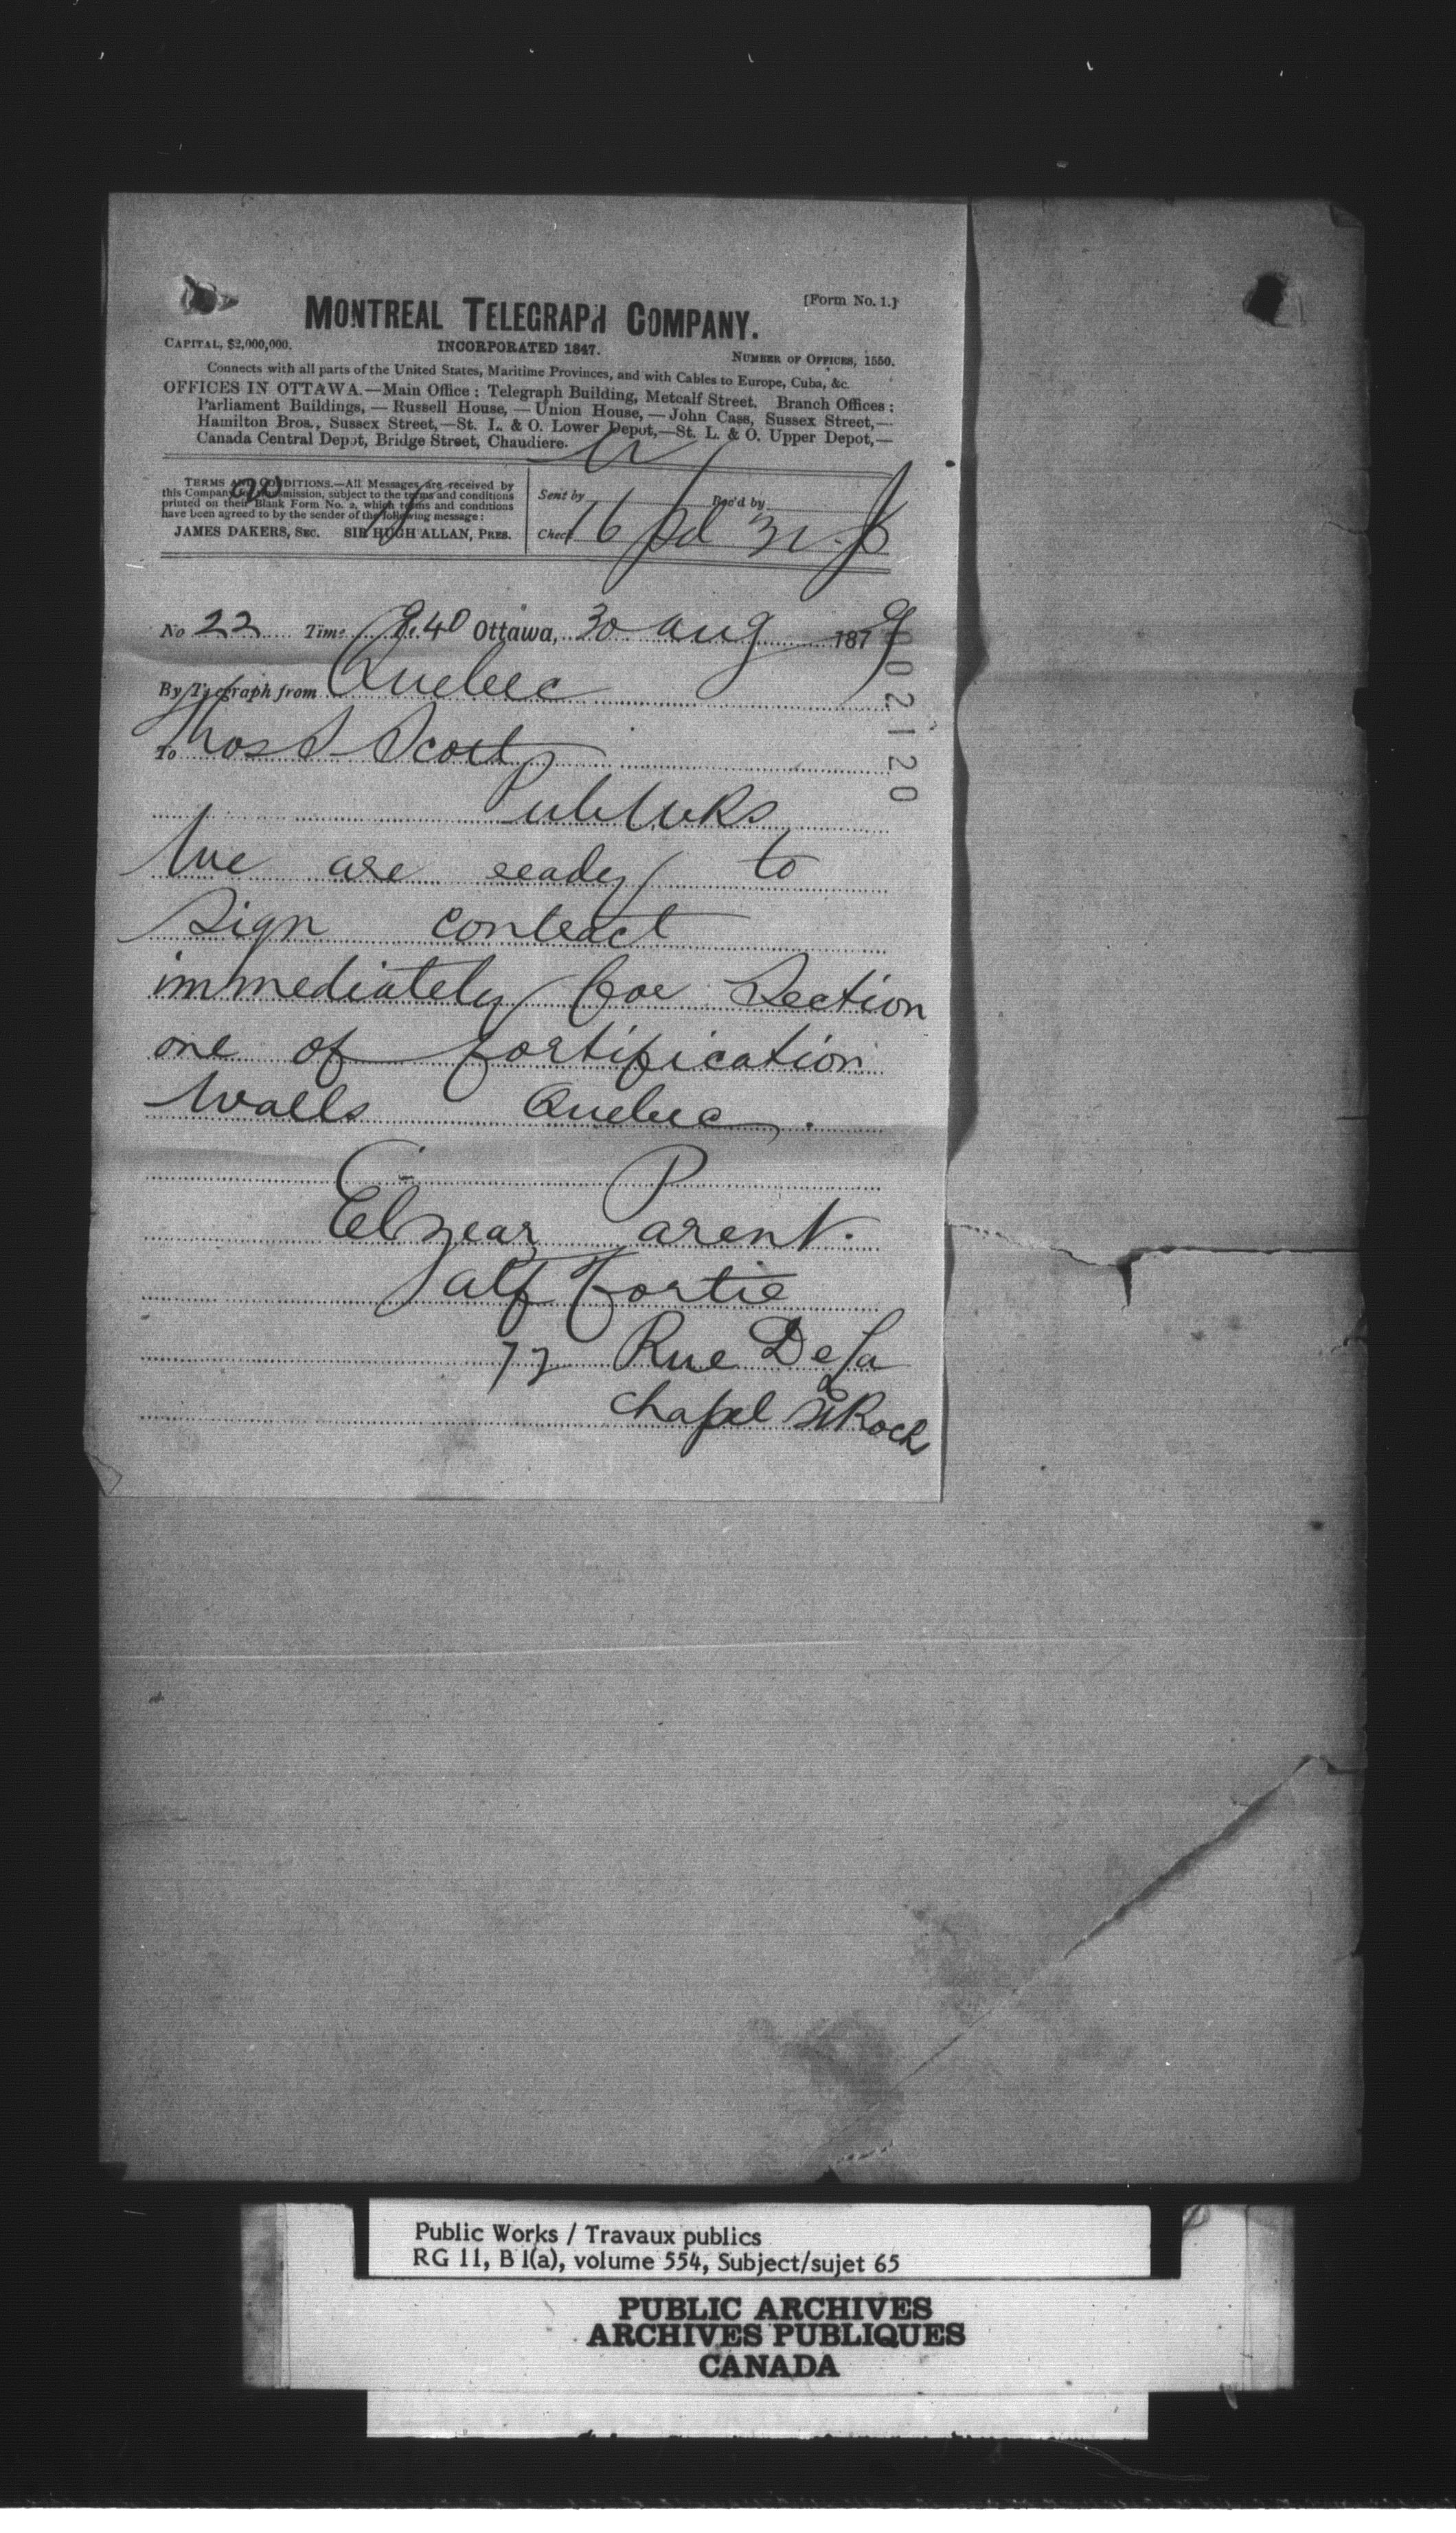 [Form No. 1.]
MONTREAL TELEGRAPH COMPANY.
CAPITAL, $2,000,000.
INCORPORATED 1847.
NUMBER OF OFFICES, 1550.
Connects with all parts of the United States, Maritime Provinces, and with Cables to Europe, Cuba, &c.
OFFICES IN OTTAWA.—Main Office: Telegraph Building, Metcalf Street. Branch Offices:
Parliament Buildings,—Russell House,—Union House,—John Cass, Sussex Street,—
Hamilton Bros., Sussex Street,—St. L. & O. Lower Depot,—St. L. & O. Upper Depot,—
Canada Central Depot, Bridge Street, Chaudiere.
TERMS AND CONDITIONS.—All Messages are received by
this Company for transmission, subject to the terms and conditions
printed on their Blank Form No. 2, which terms and conditions
have been agreed to by the sender of the following message:
JAMES DAKERS, SEC. SIR HUGH ALLAN, PRES.
Sent by Rec'd by
Check 16 pd
No 22 Time 9.40 Ottawa, 30 aug 1879
By Telegraph from Quebec
To Thos S Scott
Pub Wks
We are ready to
Sign contract
immediately for Section
one of fortification
Walls Quebec.
Elzear Parent.
alf fortie
Rue De La
chapel St Rochs
002120
Public Works / Travaux publics
RG 11, B 1(a), volume 554, Subject/sujet 65
PUBLIC ARCHIVES
ARCHIVES PUBLIQUES
CANADA